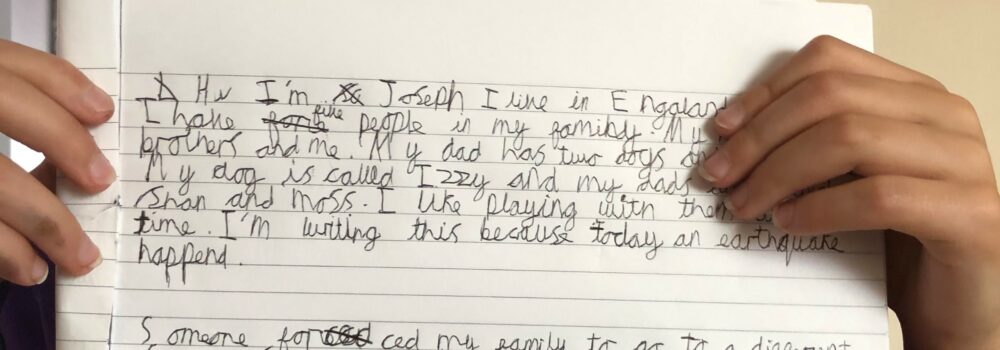 Hi I'm Joseph I live in Engaland
I have five people in my family My
brothers and me. My dad has two dogs
My dog is called Izzy and my dads
Shan and Moss. I like playing with them
time. I'm writing this because today an earthquake
happend.
Someone forced my family to go to a